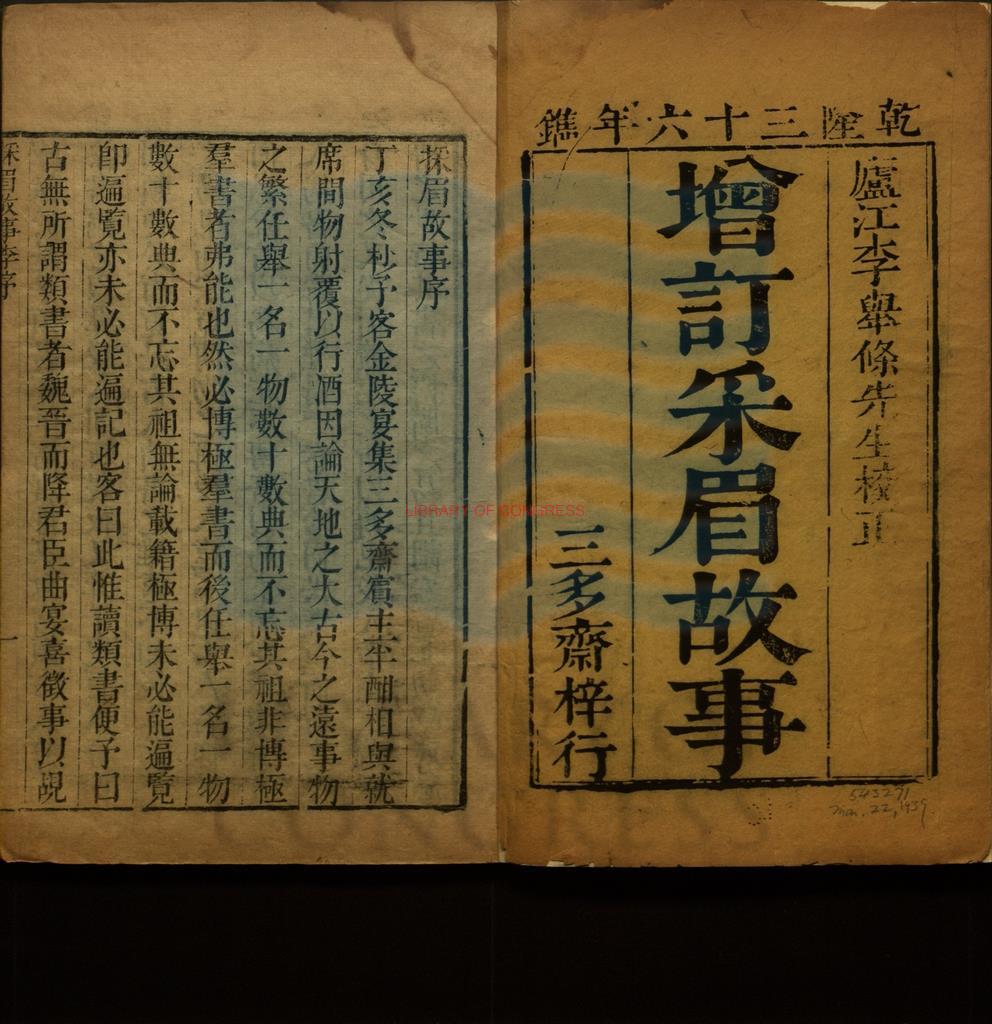 乾隆三十六年鐫
廬江李舉條先生校正
增訂采眉故事
三多齋梓行
543291
Mar. 22, 1939
LIBRARY OF CONGRESS
採眉故事序
丁亥冬杪予客金陵宴集三多齋賓主半酣相與就
席間物射覆以行酒因論天地之大古今之遠事物
之繁任舉一名一物數十數典而不忘其祖非博極
羣書者弗能也然必博極羣書而後任舉一名一物
數十數典而不忘其祖無論載籍極博未必能遍覽
卽遍覽亦未必能遍記也客曰此惟讀類書便予曰
古無所謂類書者魏晉而降君臣曲宴喜徵事以覘
採眉故事李序
一